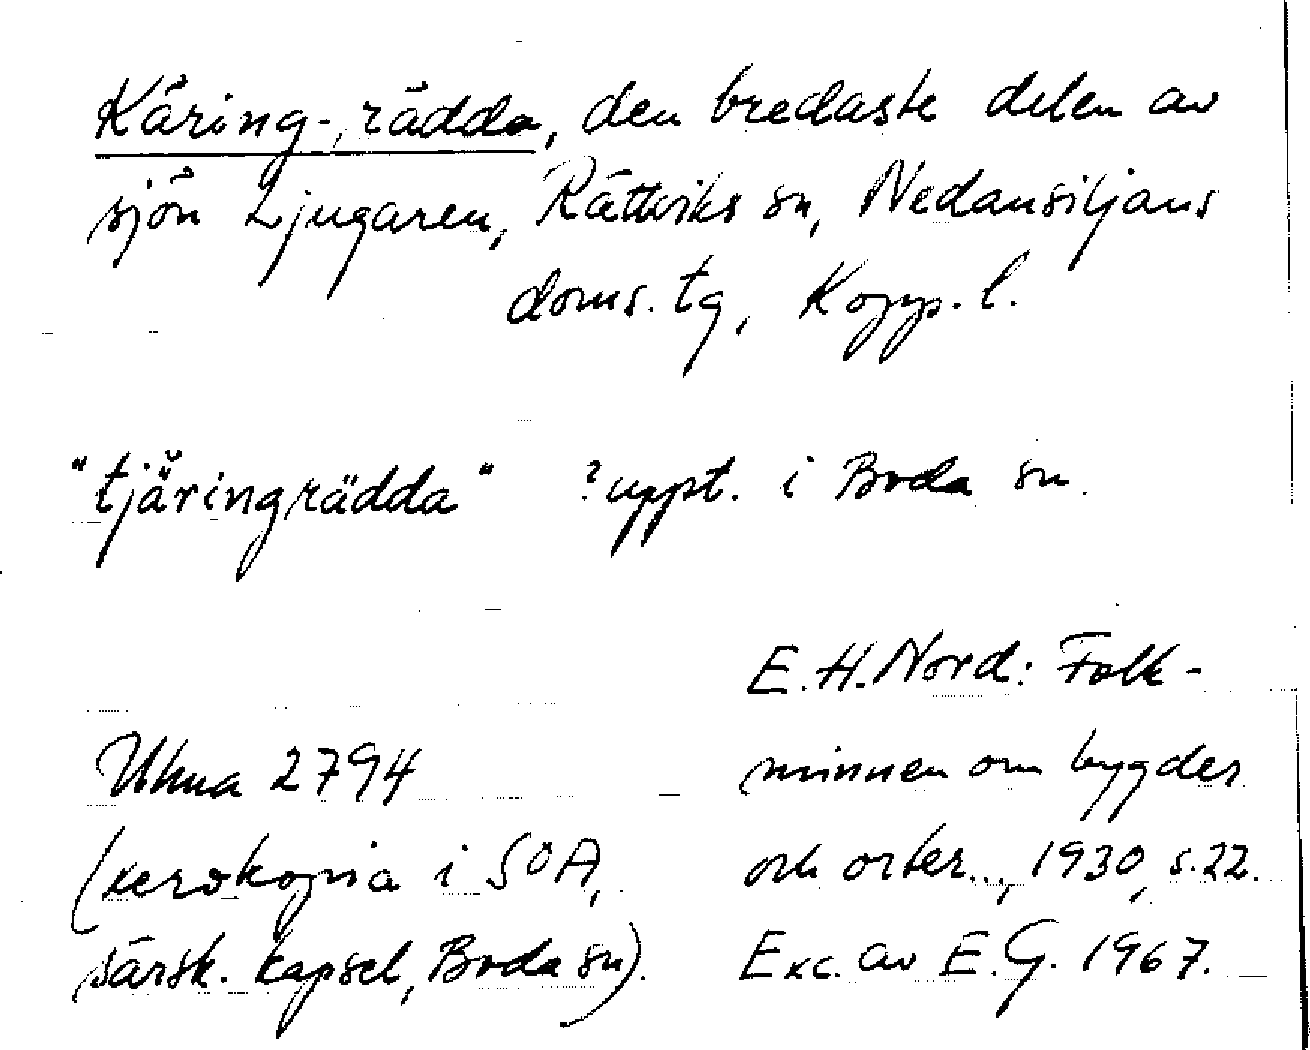 Käring-, rädda, den bredaste delen av
sjön Ljugaren, Rättviks sn, Nedansiljans
doms. tg, Kopp. l.
"tjäringrädda" ? uppt. i Boda sn.
E. H. Nord: Folk-
minnen om bygder
och orter..., 1930, s. 22.
Exc. av E. G. 1967.
Ukua 2794
(xerokopia i SOA,
särsk. kapsel, Boda sn).